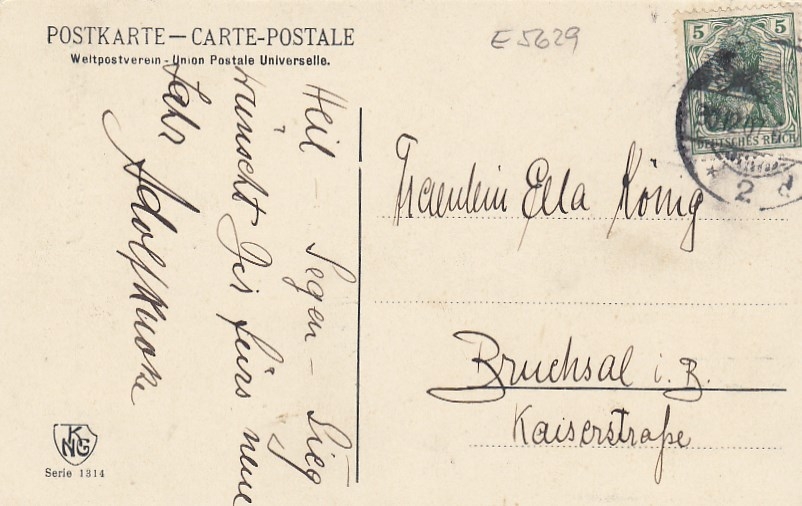 POSTKARTE — CARTE-POSTALE
Weltpostverein - Union Postale Universelle.
E 5629
5 5
DEUTSCHES REICH
2
Heil - Segen - Sieg
wünscht Dir fürs neue
Jahr Adolf
Fraeulein Ella König
Bruchsal i. B.
Kaiserstraße
KNG
Serie 1314